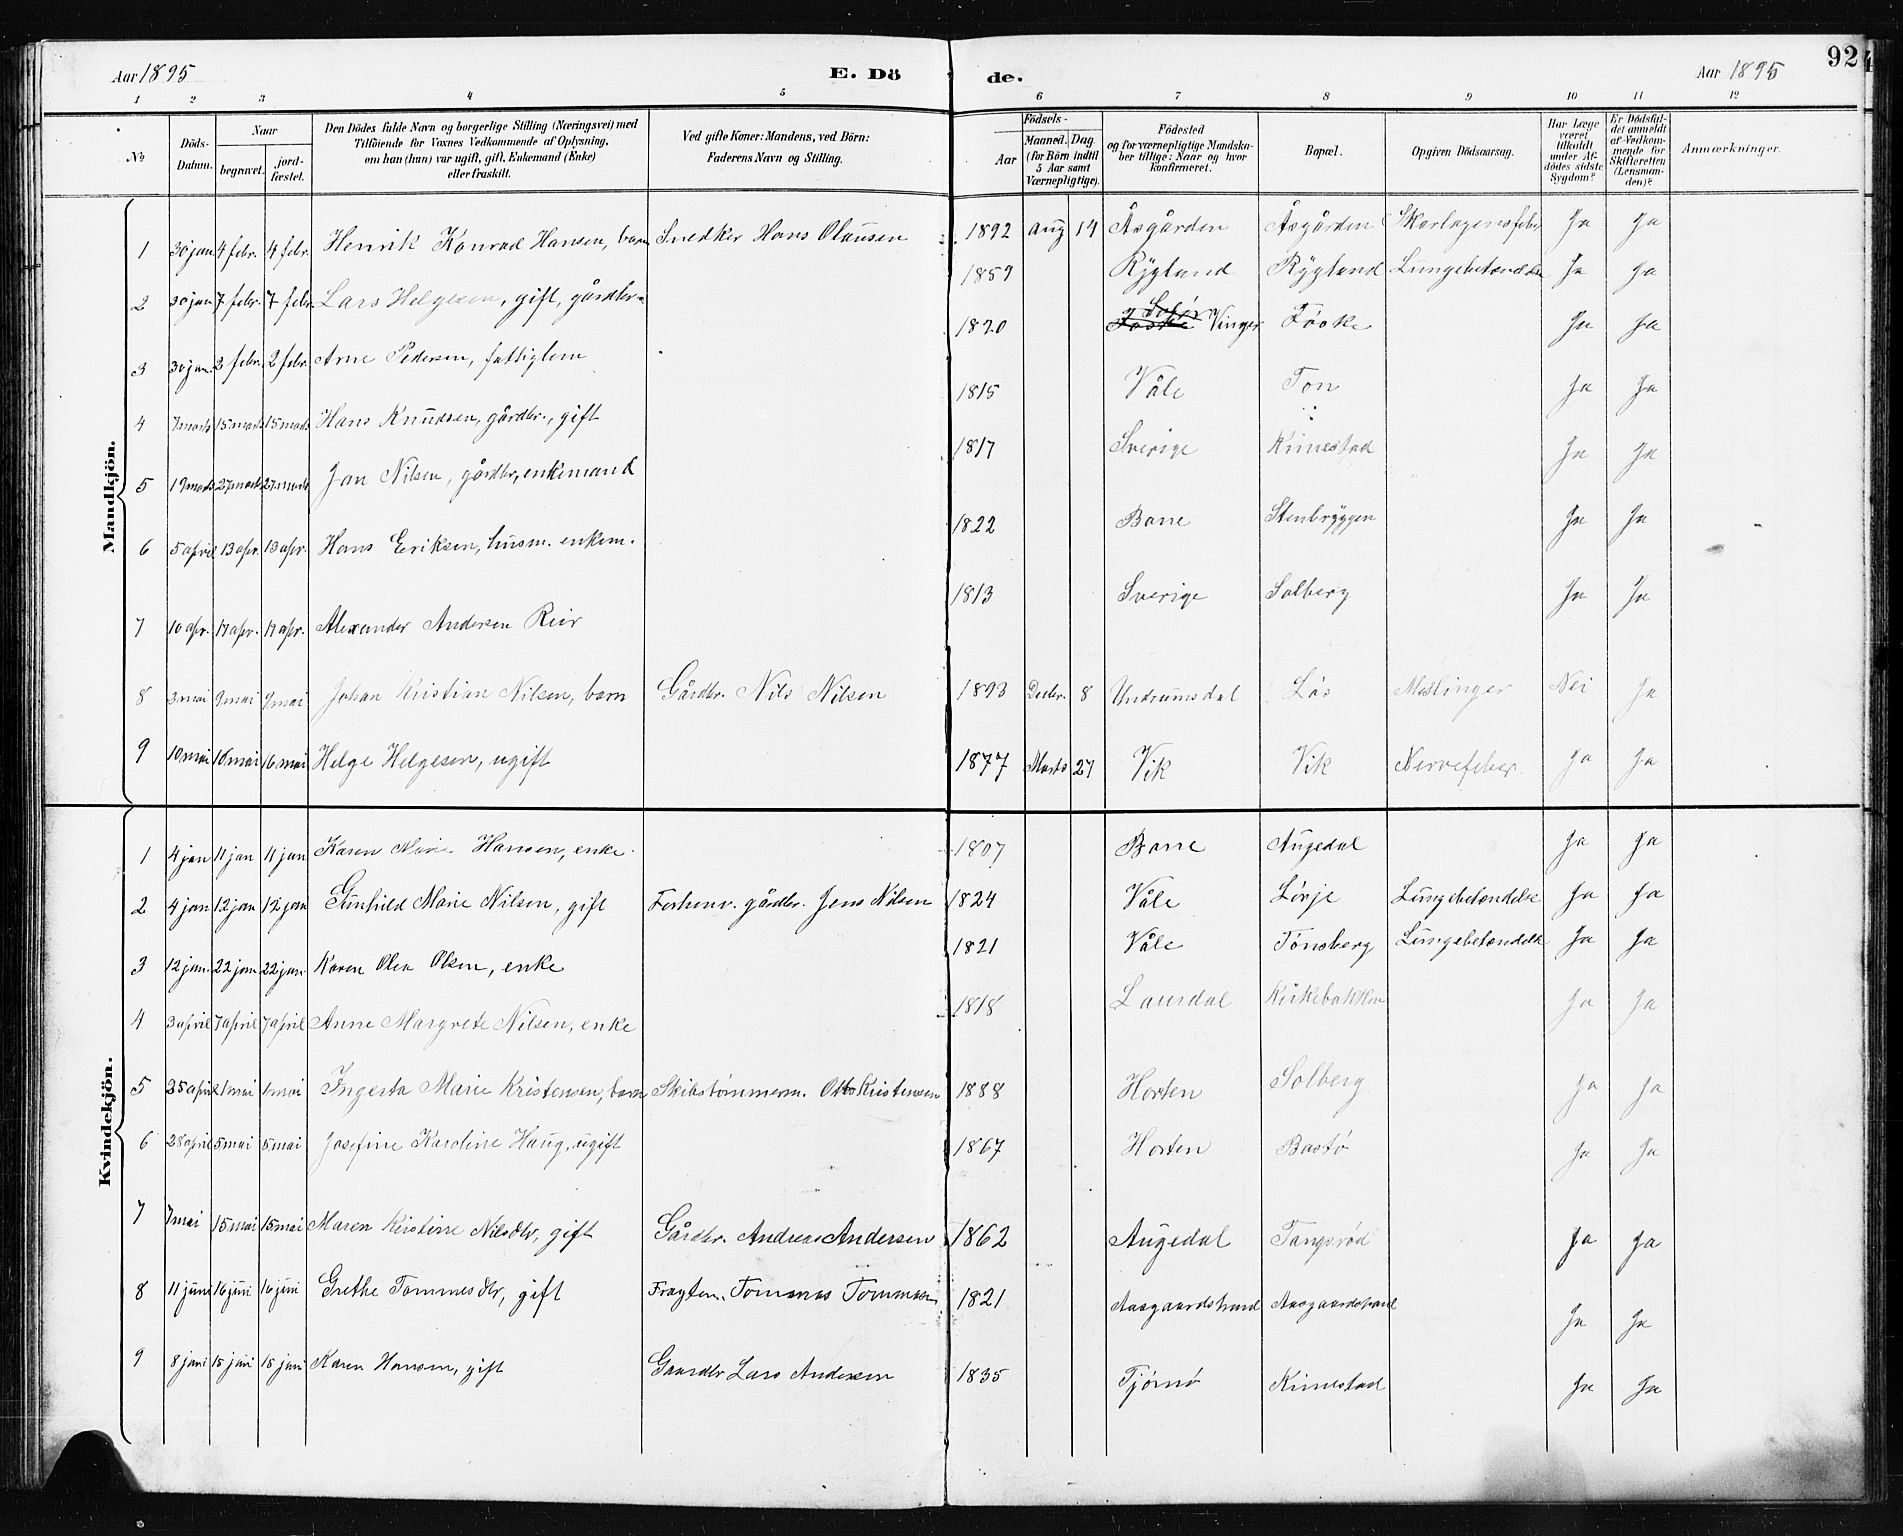 Aar 1895 E. Dö de. Aar 1895 92
1 2 3 4 5 6 7 8 9 10 11 12
No
Döds-Datum.
Naar
begravet. jordfæstet.
Den Dödes fulde Navn og borgerlige Stilling (Næringsvei) med Tilföiende for Voxnes Vedkommende af Oplysning, om han (hun) var ugift, gift, Enkemand (Enke) eller fraskilt.
Ved gifte Koner: Mandens, ved Börn: Faderens Navn og Stilling.
Födsels-
Aar Maaned. Dag. (for Börn indtil 5 Aar samt Værnepligtige).
Födested og for værnepligtige Mandskaber tillige: Naar og hvor konfirmeret.
Bopæl.
Opgiven Dödsaarsag.
Har Læge været tilkaldt under Afdödes sidste Sygdom?
Er Dödsfaldet anmeldt af Vedkommende for Skifteretten (Lensmanden)?
Anmærkninger.
Mandkjön.
1 30 jan 4 febr. 4 febr. Henrik Konrad Hansen, barn Snedker Hans Olausen 1892 aug 14 Åsgården Åsgården Skarlagensfeber Ja Ja
2 30 jan 7 febr. 7 febr. Lars Helgesen, gift, gårdbr. 1859 Rygland Rygland Lungebetændelse Ja Ja
3 30 jan. 2 febr. 2 febr. Arne Pedersen, fattiglem 1820 Vinger Ja Ja
4 7 marts 15 marts 15 marts Hans Knudsen, gårdbr., gift 1815 Våle Ton Ja Ja
5 19 marts 27 marts 27 marts Jan Nilsen, gårdbr, enkemand 1817 Sverige Kimestad Ja Ja
6 5 april 13 apr. 13 apr. Hans Eriksen, husm. enkem. 1822 Borre Stenbryggen Ja Ja
7 10 apr. 17 apr. 17 apr. Alexander Andersen 1813 Sverige Solberg Ja Ja
8 3 mai 9 mai 9 mai Johan Kristian Nilsen, barn Gårdbr. Nils Nilsen 1893 Decbr. 8 Undrumsdal Lås Meslinger Nei Ja
9 10 mai 16 mai 16 mai Helge Helgesen, ugift 1877 Marts 27 Vik Vik Nervefeber. Ja Ja
Kvindekjön.
1 4 jan 11 jan 11 jan Karen Marie Hansen, enke. 1807 Borre Augedal Ja Ja
2 4 jan 12 jan 12 jan Gunhild Marie Nilsen, gift Forhenv. gårdbr. Jens Nilsen 1824 Våle Lørje Lungebetændelse Ja Ja
3 12 jan. 22 jan 22 jan. Karen Olea Olsen, enke 1821 Våle Tønsberg Lungebetændelse Ja Ja
4 3 april 7 april 7 april Anne Margrete Nilsen, enke 1818 Laurdal Kirkebakken Ja Ja
5 25 april 1 mai 1 mai Ingerta Marie Kristensen, barn Skibstømmerm. Otto Kristensen 1888 Horten Solberg Ja Ja
6 28 april 5 mai 5 mai Josefine Karoline Haug, ugift 1867 Horten Bastø Ja Ja
7 7 mai 15 mai 15 mai Maren Kristine Nilsdtr, gift Gårdbr. Andreas Andersen 1862 Augedal Tangsrød Ja Ja
8 11 juni 16 juni 16 juni Grethe Tommesdtr, gift Tommas Tommasen 1821 Aasgaardstrand Aasgaardstrand Ja Ja
9 8 juni 15 juni 15 juni Karen Hansen, gift Gaardbr Lars Andersen 1835 Tjømø Kimestad Ja Ja